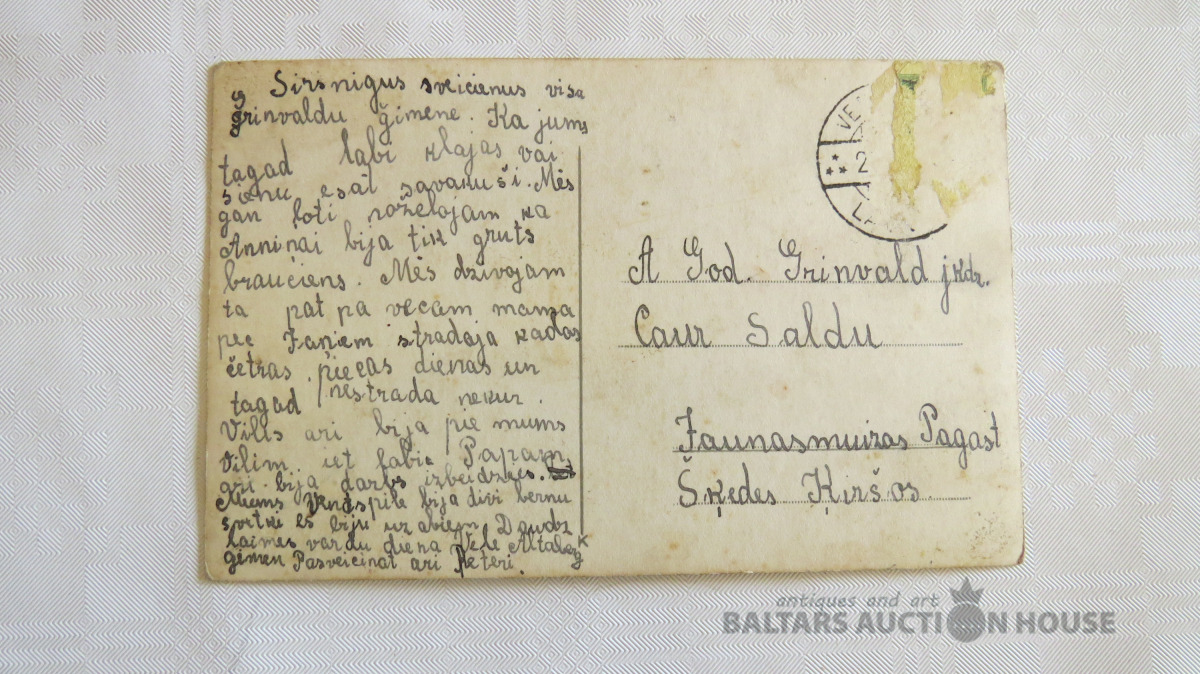 Sirsnigus sveicienus visa
Grinvaldu ģimene. Ka jums
tagad labi klajas vai
sienu esat savakuši. Mēs
gan ļoti nožēlojam ka
Anniņai bija tik gruts
brauciens. Mēs dzivojam
ta pat pa vecam mama
pee Faņiem stradaja kadas
četras piecas dienas un
tagad nestrada nekur.
Vilis ari bija pie mums
Vilim iet labi. Papam
ari bija darbs izbeidzies.
Mums Ventspile bija divi bernu
svetki es biju uz abiem Daudz
laimes vardu diena Vele Altaberg
gimen Pasveicinat ari Peteri.
VE
2
L
A God. Grinvald jkdz.
Caur Saldu
Jaunasmuizas Pagast
Šķedes Ķiršos
antiques and art
BALTARS AUCTION HOUSE